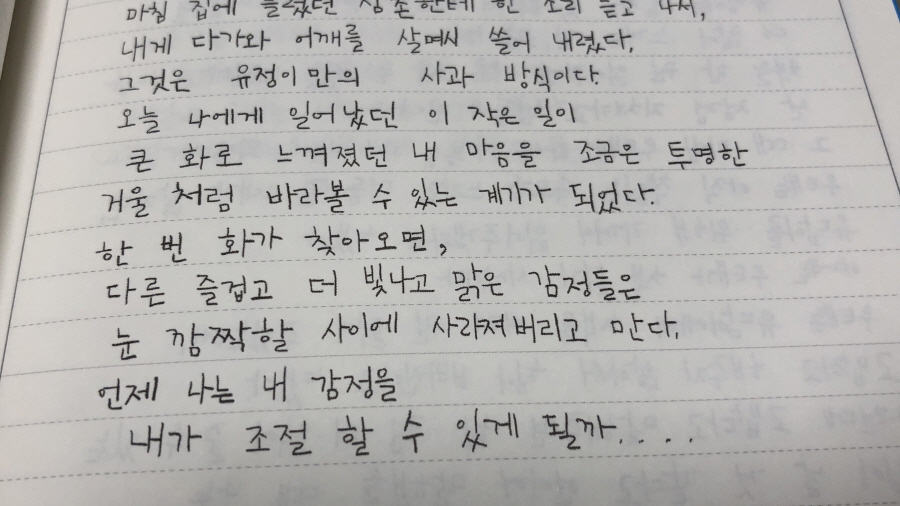 마침 집에 들렀던 삼촌한테 한 소리 듣고 나서,
내게 다가와 어깨를 살며시 쓸어 내렸다.
그것은 유정이만의 사과 방식이다.
오늘 나에게 일어났던 이 작은 일이
큰 화로 느껴졌던 내 마음을 조금은 투명한
거울 처럼 바라볼 수 있는 계기가 되었다.
한 번 화가 찾아오면,
다른 즐겁고 더 빛나고 맑은 감정들은
눈 깜짝할 사이에 사라져버리고 만다.
언제 나는 내 감정을
내가 조절 할 수 있게 될까....